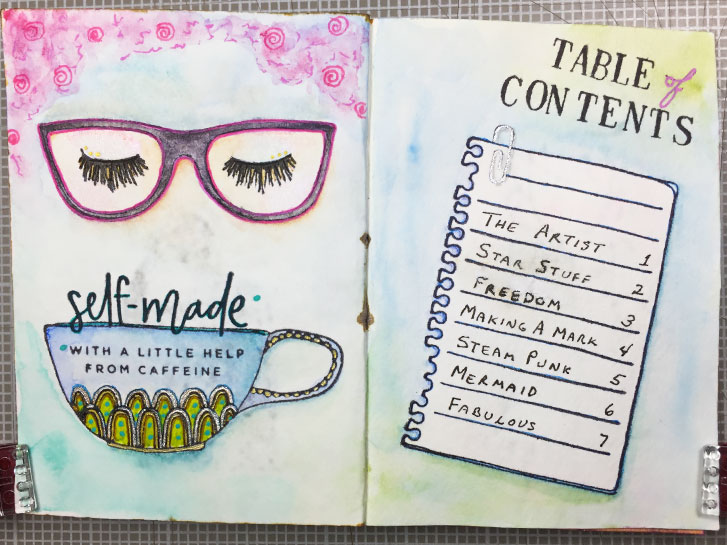 self-made
WITH A LITTLE HELP
FROM CAFFEINE
TABLE of
CONTENTS
THE ARTIST 1
STAR STUFF 2
FREEDOM 3
MAKING A MARK 4
STEAM PUNK 5
MERMAID 6
FABULOUS 7